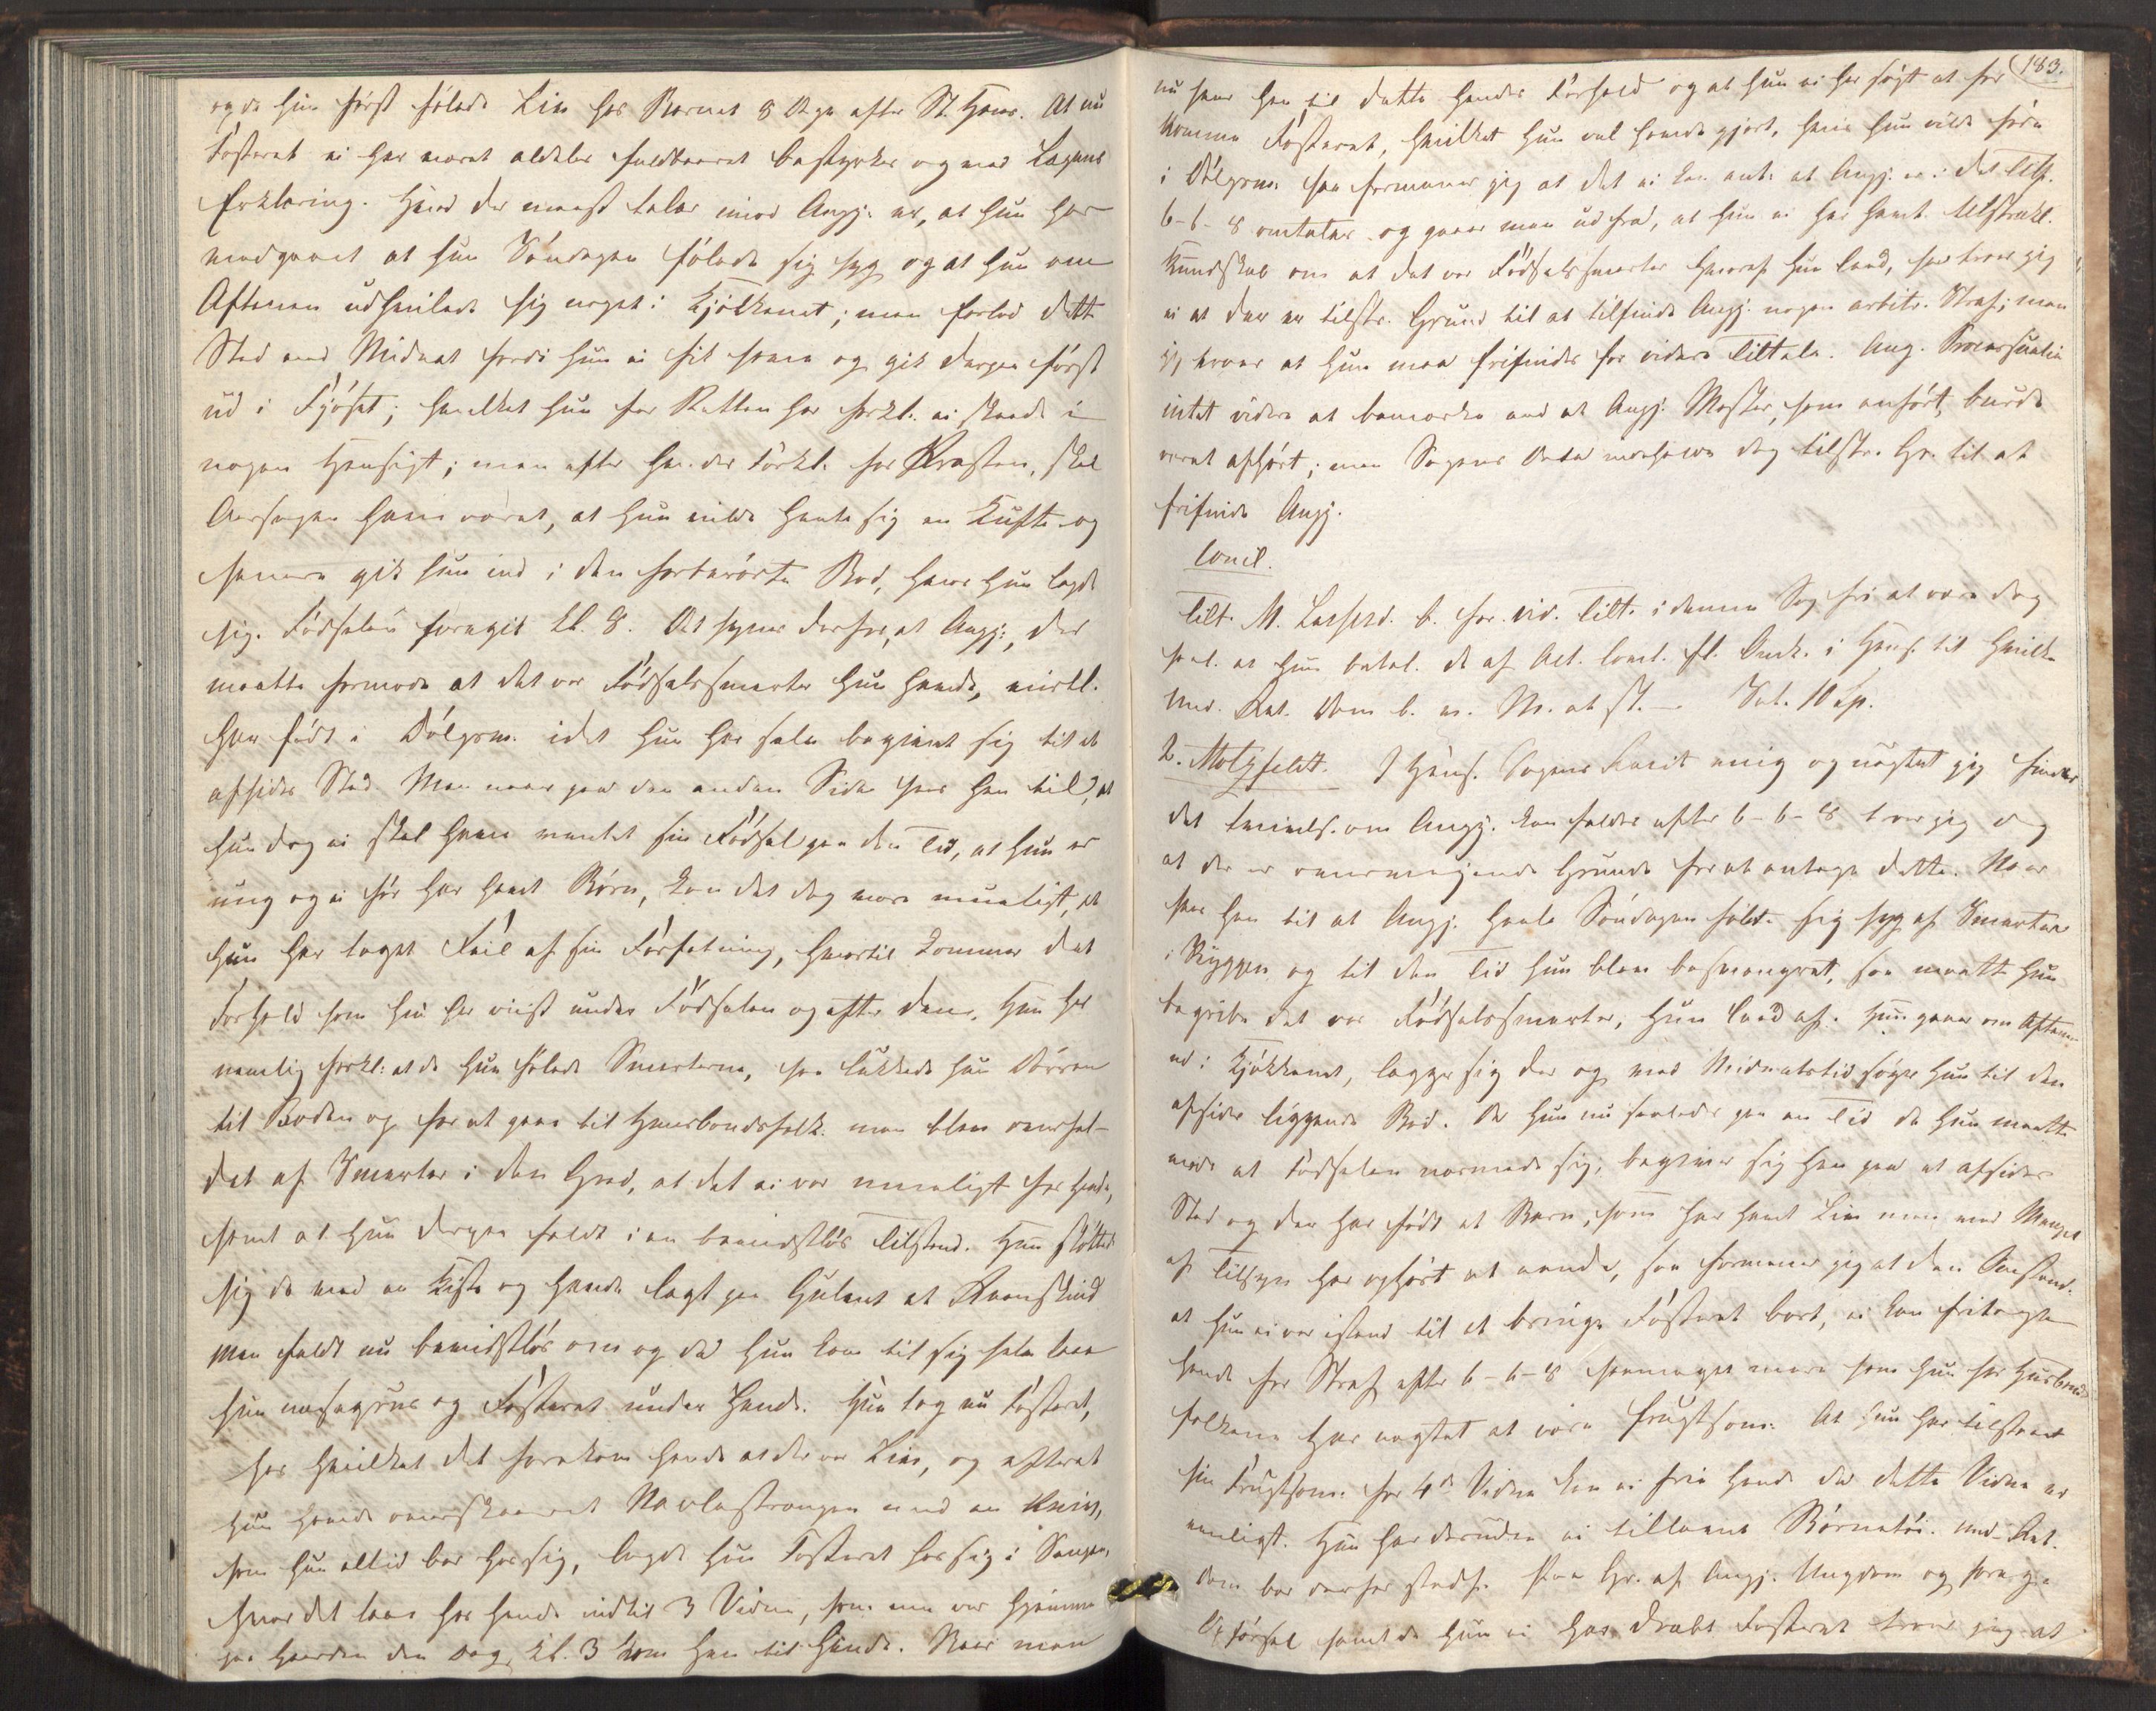 og da hun først følede Liv hos Barnet 8 Dge efter St. Hans. At nu
Fosteret ei har været aldeles fuldbaaret bestyrkes og ved Lægens
Erklæring. Hvad der meest taler imod Angj. er, at hun har
vedgaaet at hun Søndagen følede sig syg og at hun om
Aftenen udhvilede sig noget i Kjøkkenet; men forlod dette
Sted ved Midnat fordi hun ei fik sove og gik derpaa først
ud i Fjøset; hvilket hun for Retten har forkl. ei skeede i
nogen Hensigt; men efter hendes Forkl. for Præsten, skal
Aarsagen have været, at hun vilde hente sig en Kufte og
senere gik hun ind i den forbemeldte Bod, hvor hun lagde
sig. Fødselen foregik kl. 8. Det synes derfor, at Angj., der
maatte formode at det var Fødselssmerter hun havde, virkl.
har født i Dølgsm. idet hun har selv begivet sig til et
afsides Sted. Men naar paa den anden Side sees hen til, at
hun dog ei skal have ventet sin Fødsel paa den Tid, at hun er
ung og ei før har havt Børn, kan det dog være mueligt, at
hun har taget Feil af sin Forfatning, hvortil kommer det
Forhold som hun har viist under Fødselen og efter den. Hun har
nemlig forkl. at da hun følede Smerterne, saa lukkede hun Døren
til Boden op for at gaae til Huusbondsfolk. men blev overfal-
det af Smerter i den Grad, at det ei var mueligt for hende,
samt at hun derpaa faldt i en bevidstløs Tilstand. Hun støttede
sig da ved en Kiste og havde lagt paa Gulvet et Skind
men faldt nu bevidstløs om og da hun kom til sig selv laae
hun næsegruus og Fosteret under hende. Hun tog nu Fosteret,
hos hvilket det forekom hende at der var Liv, og efterat
hun havde overskaaret Navlestrængen med en Kniv,
som hun altid bar hos sig, lagde hun Fosteret hos sig i Sengen,
hvor det laae hos hende indtil 3 Vidne, som ene var hjemme
paa Gaarden den Dag, kl. 3 kom hen til hende. Naar man
183.
nu seer hen til dette hendes Forhold og at hun ei har søgt at for
komme Fosteret, hvilket hun vel havde gjort, hvis hun vilde føde
i Dølgsm. saa formener jeg at det ei kan ant. at Angj. er i det Tilf.
6-6-8 omtaler og gaaer man ud fra, at hun ei har havt tilstrækl.
Kundskab om at det var Fødselssmerter hvoraf hun leed, saa troer jeg
ei at der er tilstr. Grund til at tilfinde Angj. nogen arbitr. Straf; men
jeg troer at hun maa frifindes for videre Tiltale. Ang. Processualia
intet videre at bemærke end at Angj. Moster, som anført, burde
været afhørt; men Sagens Data meehave dog tilstr. Gr. til at
frifinde Angj.
Concl.
Tilt. M. Larsesd. b. for vid. Tilt. i denne Sag fri at være dog
saal. at hun betal. de af Act. Concl. fl. Omk. i Hens. til hvilke
Und. Ret. Dom b. v. M. at st. — Sal. 10 Sp.
2. Motzfeldt. I Hens. Sagens Facit enig og uagtet jeg finder
det tvivls. om Angj. kan fældes efter 6-6-8 troer jeg dog
at der er overveiende Grunde for at antage dette. Naar
sees hen til at Angj. heele Søndagen følte sig syg af Smerter
i Ryggen og til den Tid hun blev besvangret, saa maatte hun
begribe det var Fødselssmerter, hun leed af. Hun gaaer om Aftenen
ud i Kjøkkenet, lægger sig der og ved Midnatstid søger hun til den
afsides liggende Bod. Da hun nu saaledes paa en Tid da hun maatte
vide at Fødselen nærmede sig, begiver sig hen paa et afsides
Sted og der har født et Barn, som har havt Liv men ved Mangel
af Tilsyn har ophørt at aande, saa formener jeg at den Omstænd.
at hun ei var istand til at bringe Fosteret bort, ei kan fritage
hende for Straf efter 6-6-8 saameget mere som hun for Huusbonds
folkene har nægtet at være frugtsom. At hun har tilstaaet
sin Frugtsom. for 4de Vidne kan ei frie hende da dette Vidne er
ueenigt. Hun har desuden ei tillavet Børnetøi. Und. Ret.
Dom bør derfor stadf. Paa Gr. af Angj. Ungdom og foreg.
Opførsel samt da hun ei har dræbt Fosteret troer jeg at